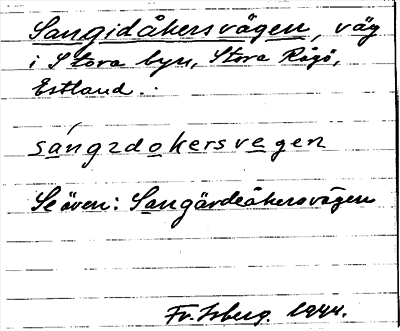 Sangidåkersvägen, väg
i Stora byn, Stora Rågö,
Estland.
sángɪdokersvegen
Se även: Sangärdeåkersvägen
Fr. Isberg. 1944.